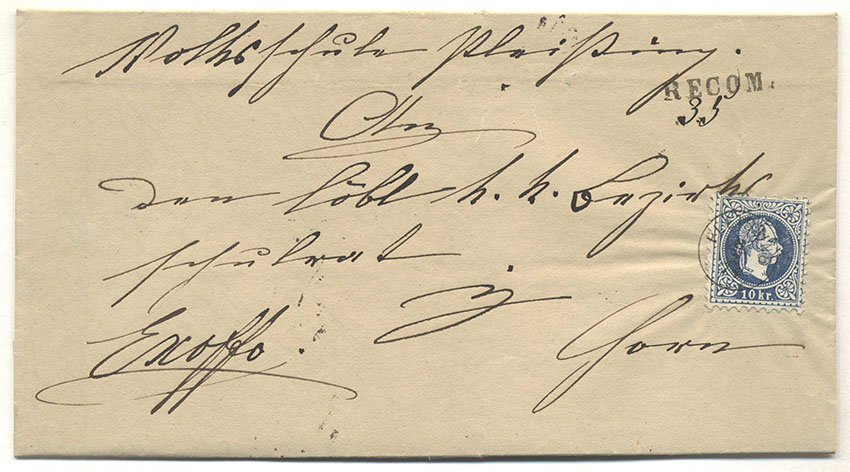 Volksschule Pleißing.
RECOM.
35
An
den löbl k. k. Bezirks
schulrat
in
Exoffo.
Horn
10 kr.